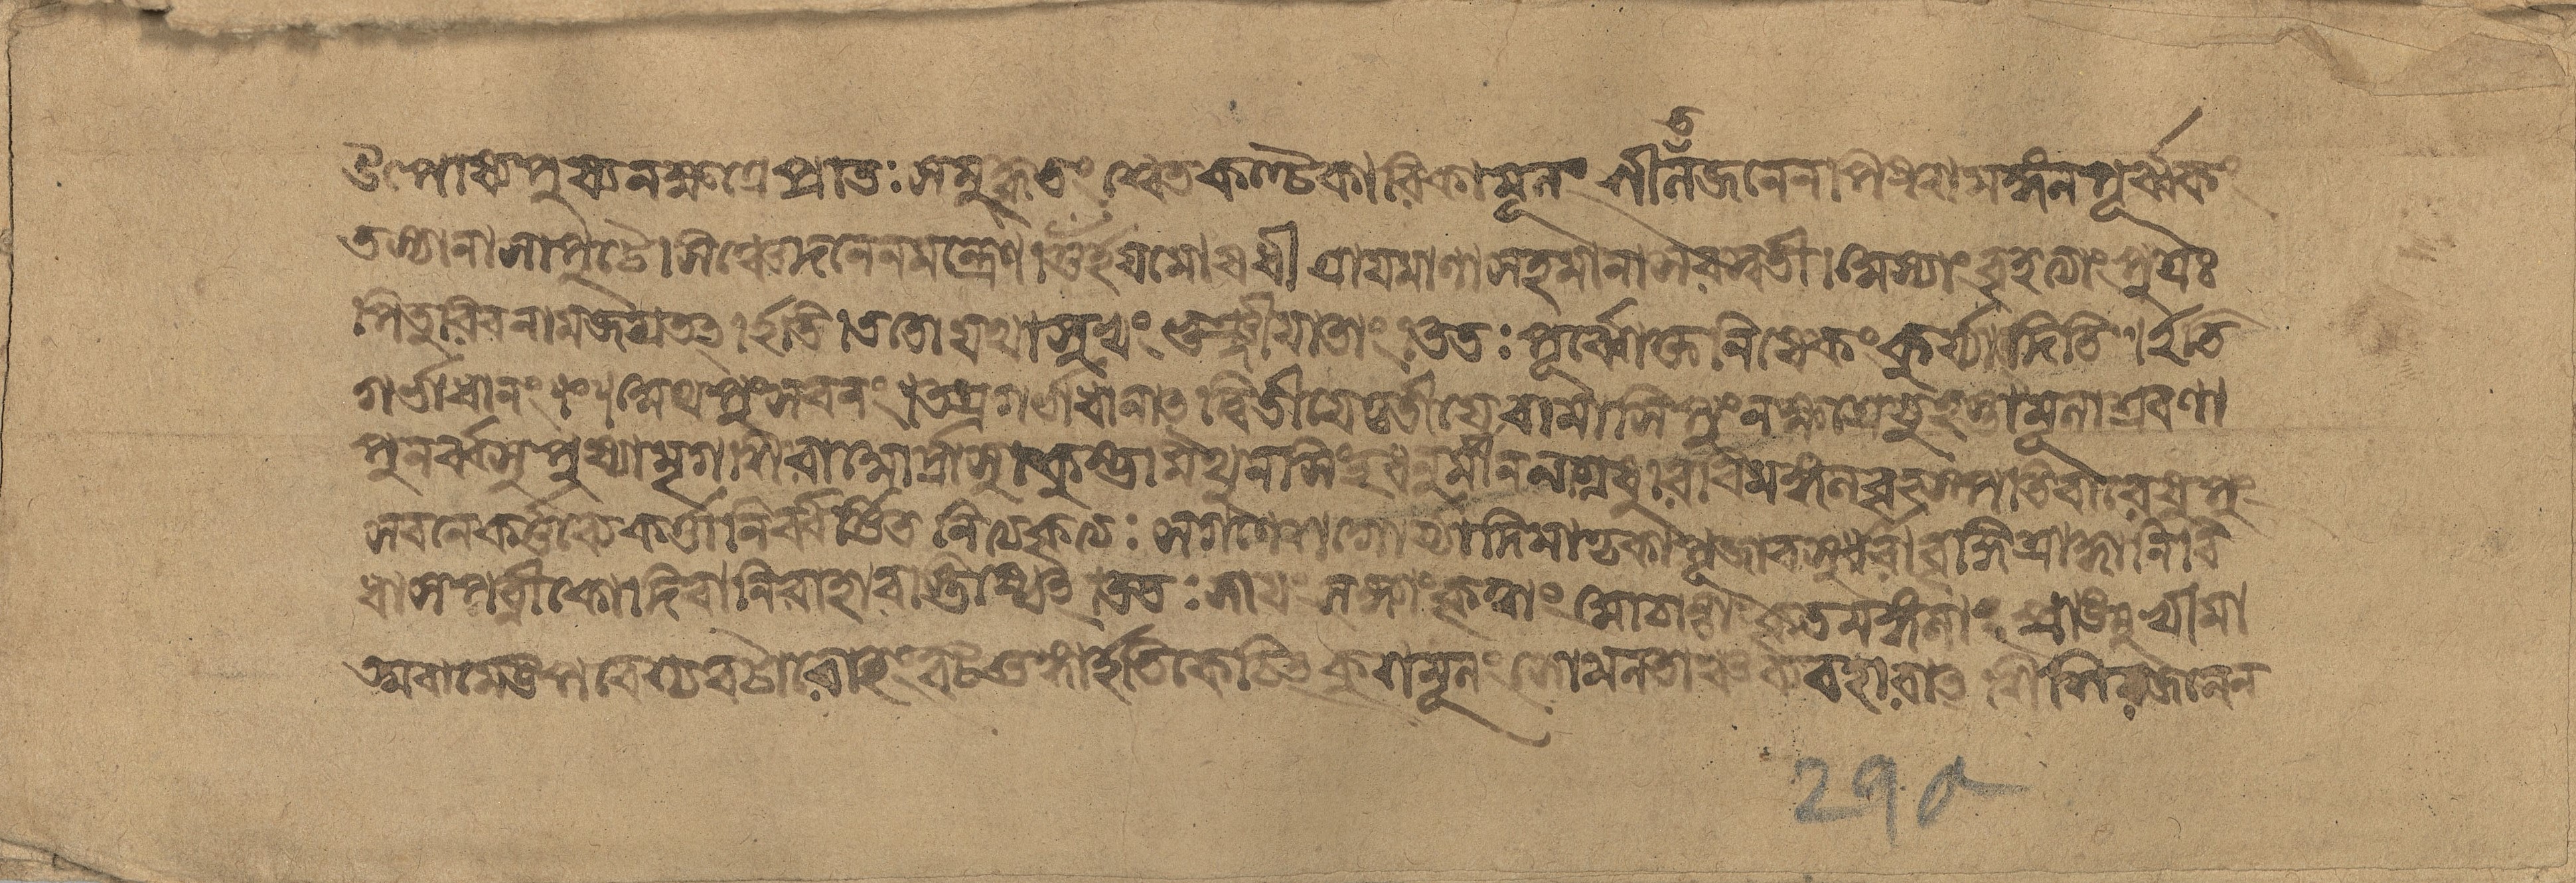 উপোষ্য পুষ্যনক্ষত্রে প্রাতঃ সমুদ্ধৃতং শ্বেতকণ্টকারিকামূলং শীতলজলেনাপিধায় মঙ্গলপূর্ব্বকং
তস্যা নাসাপুটে সিঞ্চেদনেন মন্ত্রেণ ওঁ ইয়মোষধী ত্রায়মাণা সহমানা সরস্বতী অস্যাং বৃহত্যাং পুত্রঃ
পিতুরিব নাম জগ্রভং ইতি ততো যথাসুখং ভুঞ্জীয়াতাং ততঃ পূর্ব্বোক্তনিষেকং কুর্য্যাদিতি ইতি
গর্ভাধানং অথ পুংসবনং তত্র গর্ভাধানাত্ দ্বিতীয়ে তৃতীয়ে বা মাসি পুংনক্ষত্রেষু হস্তামূলাশ্রবণা
পুনর্ব্বসুপুষ্যামৃগশিরার্দ্রাসু কুম্ভমিথুনসিংহধনুর্মীনলগ্নেষু রবিমঙ্গলবৃহস্পতিবারেষু পুং
সবনে কর্ত্তব্যে কর্ত্তা নির্ব্বর্ত্তিতনিত্যকৃত্যঃ সগণেশগৌর্য্যাদিমাতৃকাপূজাবসুধারাবৃদ্ধিশ্রাদ্ধানি বি
ধা সপত্নীকো দিবা নিরাহারস্তিষ্ঠেত্ ততঃ সায়ং কৃতমঙ্গলাং প্রাঙ্মুখীমা
ত্মবামে উপবেশ্য বটারোহং বটশুঙ্গা ইতি কুশমূলং সোমলতা শিশিরজলেন
290